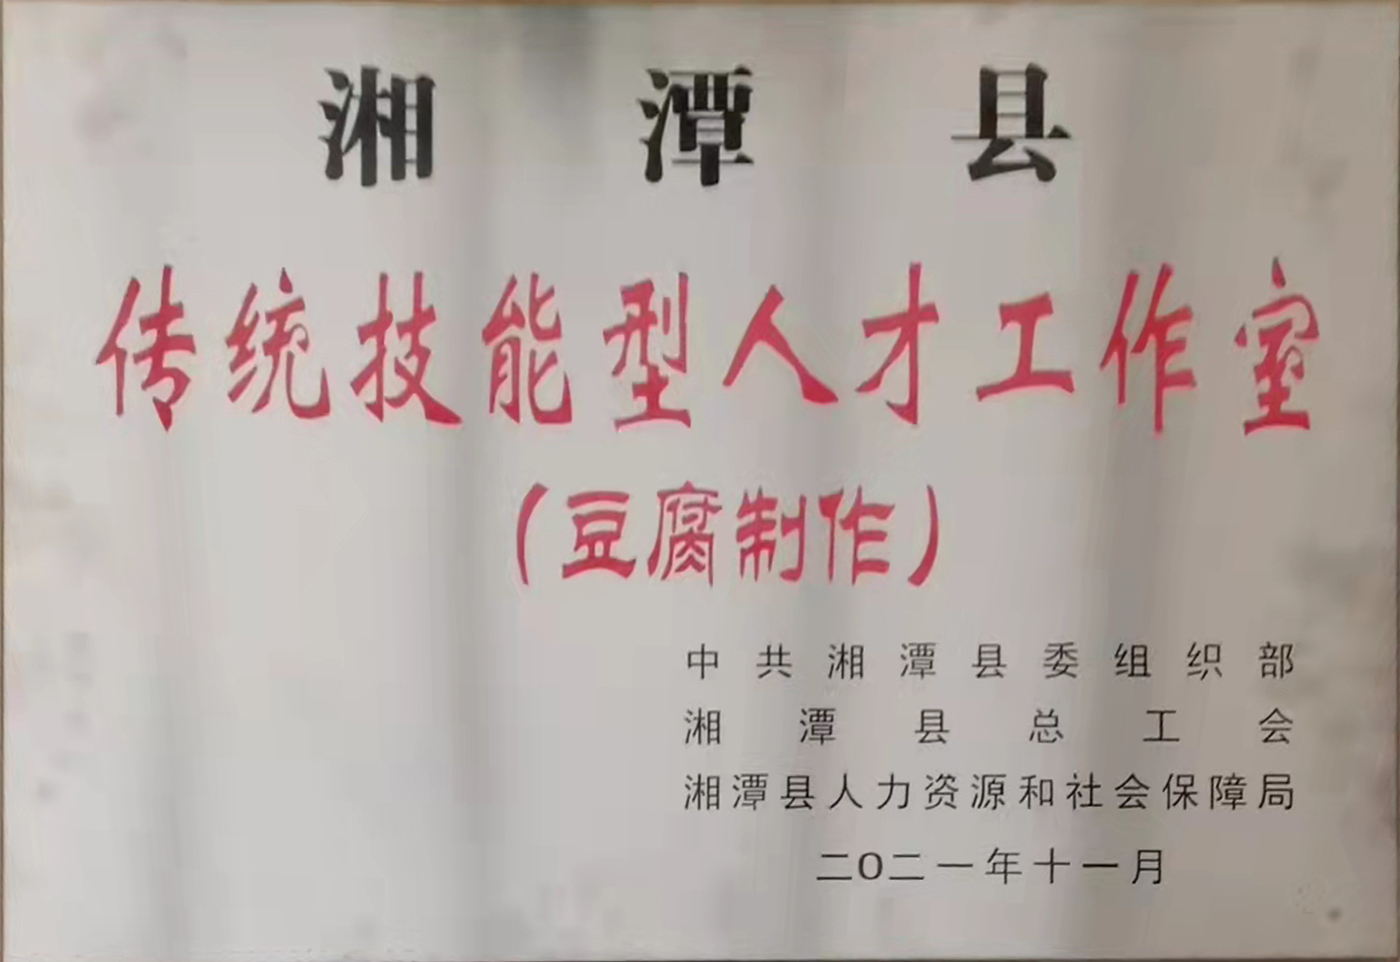 湘潭县
传统技能型人才工作室
（豆腐制作）
中共湘潭县委组织部
湘潭县总工会
湘潭县人力资源和社会保障局
二O二一年十一月